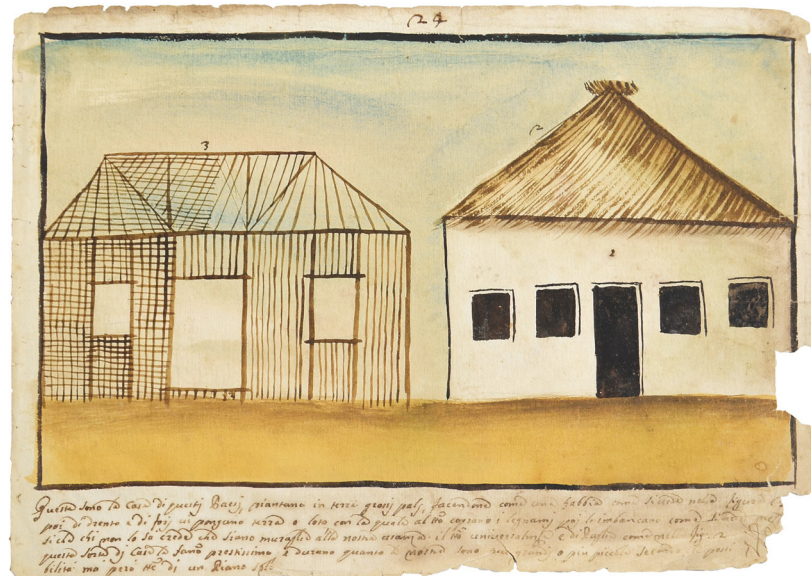 24
3
2
1
Queste sono le Case di questi Paesi, piantano in terra grossi pali, facendone come una gabbia come si vede nella figura
poi di drento e di fori vi pongono terra o loto con la quale coprano i legnami poi le imbiancano come
si che chi non lo sa crede che siano muraglie alla nostra usanza il universale è di Paglia come nella fig. 2
questa sorte di Case le fanno prestissimo e durano quanto le nostre sono più grandi o più piccole secondo la possi
bilità ma però di un Piano solo